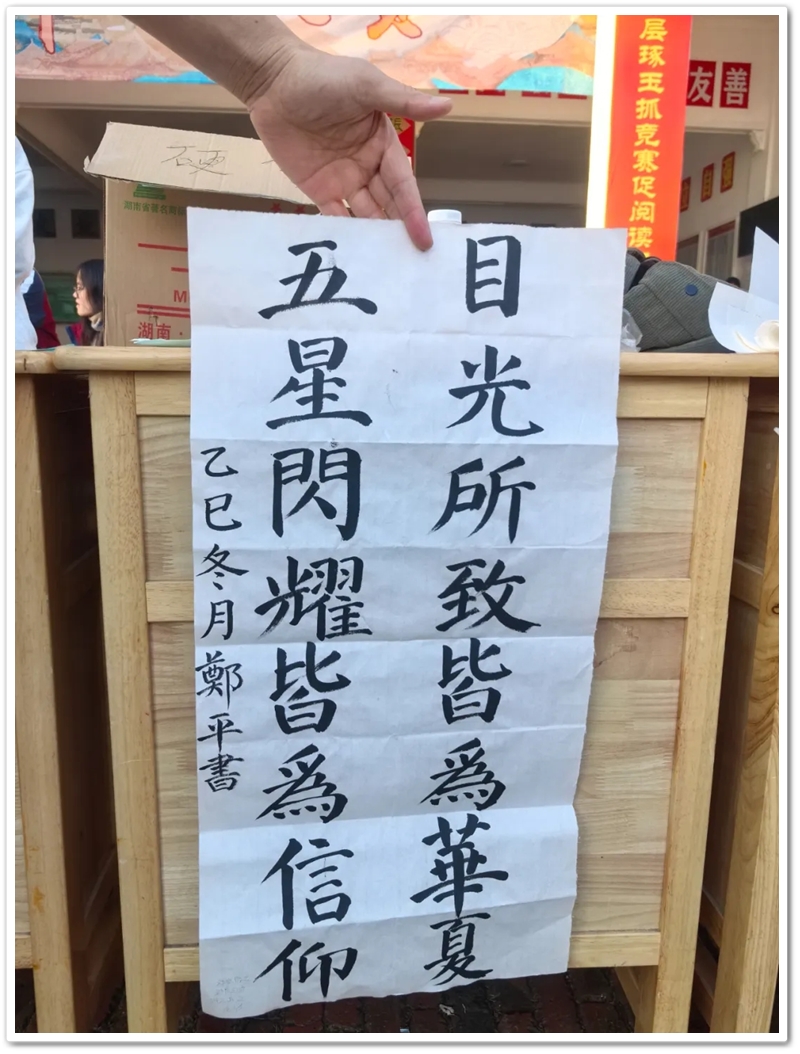 目光所致皆為華夏
五星閃耀皆為信仰
乙巳冬月鄭平書
层琢玉抓竞赛促阅读
友善
硬
湖南省著名商
湖南·